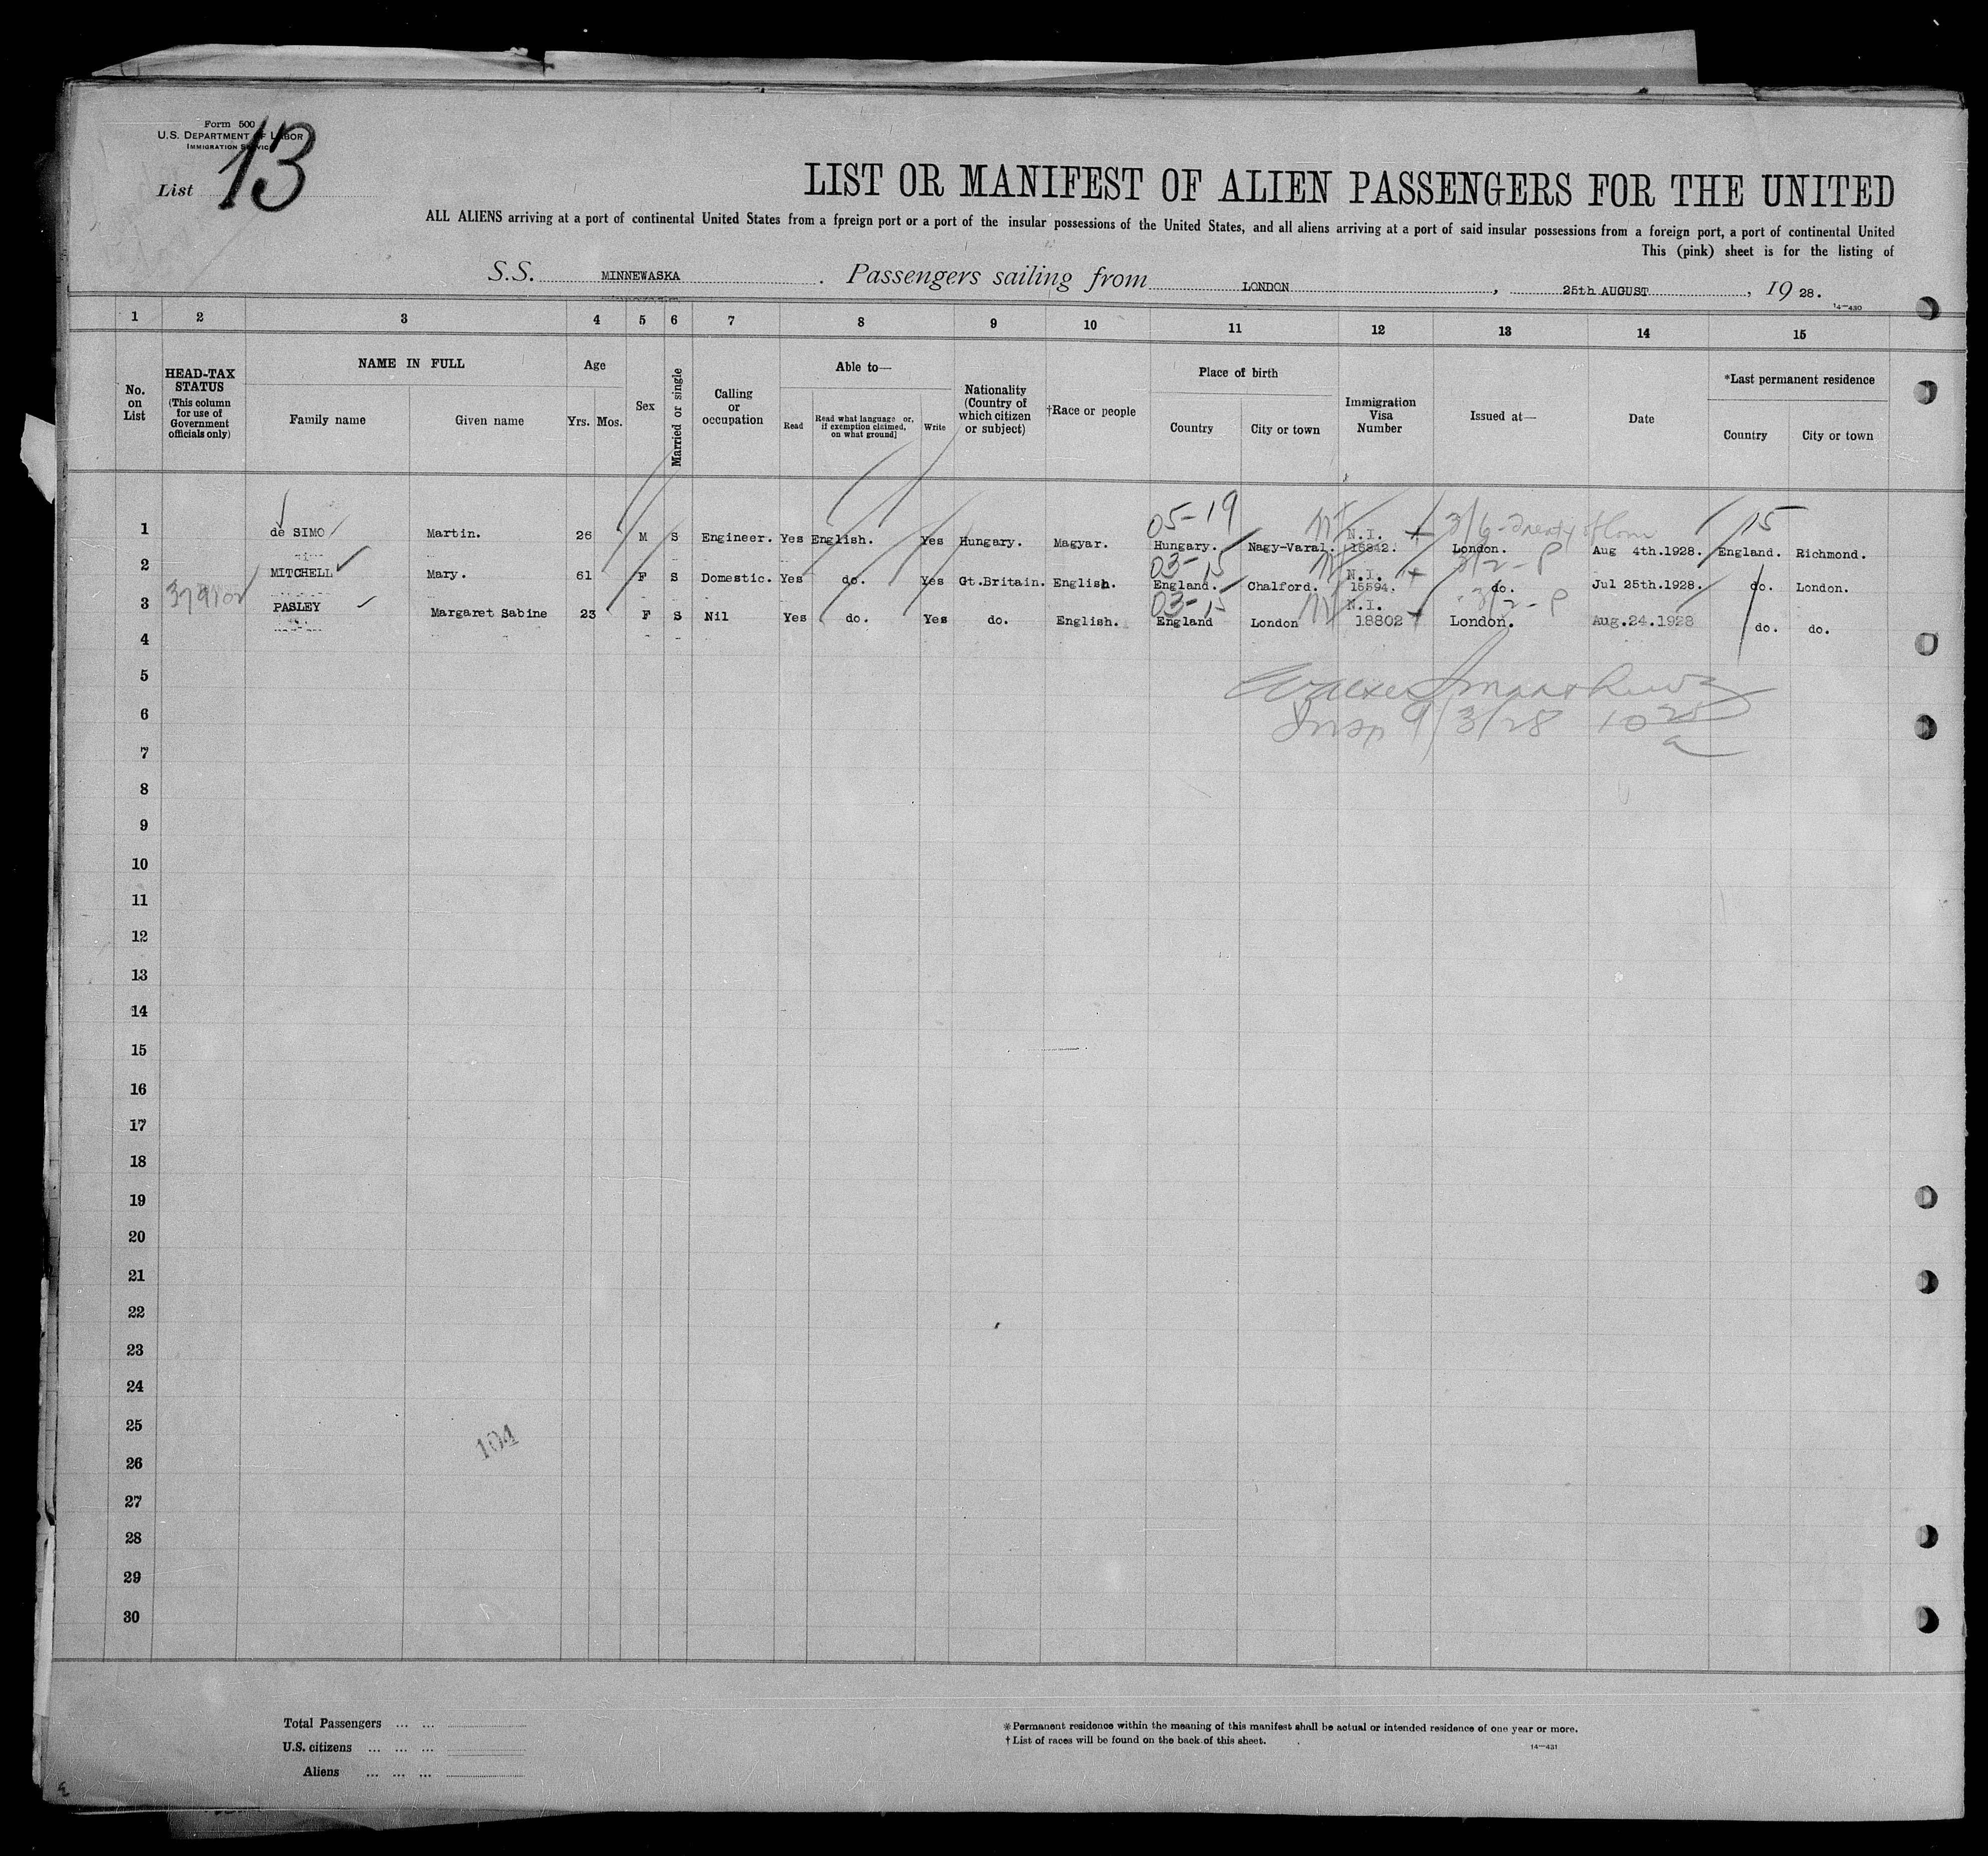 Form 500
U.S. DEPARTMENT OF LABOR
IMMIGRATION SERVICE
List 13
LIST OR MANIFEST OF ALIEN PASSENGERS FOR THE UNITED
ALL ALIENS arriving at a port of continental United States from a foreign port or a port of the insular possessions of the United States, and all aliens arriving at a port of said insular possessions from a foreign port, a port of continental United
This (pink) sheet is for the listing of
S.S. MINNEWASKA. Passengers sailing from LONDON, 25th AUGUST, 19 28.
14—430
1 2 3 4 5 6 7 8 9 10 11 12 13 14 15
No. on List
HEAD-TAX STATUS
(This column for use of Government officials only)
NAME IN FULL
Family name Given name
Age
Yrs. Mos.
Sex
Married or single
Calling or occupation
Able to—
Read
Read what language [or, if exemption claimed, on what ground]
Write
Nationality (Country of which citizen or subject)
†Race or people
Place of birth
Country City or town
Immigration Visa Number
Issued at—
Date
*Last permanent residence
Country City or town
05-19 3/6- 15
1 de SIMO Martin. 26 M S Engineer. Yes English. Yes Hungary. Magyar. Hungary. Nagy-Varal. N.I. 15842. London. Aug 4th.1928. England. Richmond.
03-15 3/2-P
2 MITCHELL Mary. 61 F S Domestic. Yes do. Yes Gt.Britain. English. England. Chalford. N.I. 15594. do. Jul 25th.1928. do. London.
03-15 3/2-P
3 PASLEY Margaret Sabine 23 F S Nil Yes do. Yes do. English. England London N.I. 18802 London. Aug.24.1928 do. do.
4
5
Insp 9/3/28 10 25 a
6
7
8
9
10
11
12
13
14
15
16
17
18
19
20
21
22
23
24
25
104
26
27
28
29
30
Total Passengers ... ...
U.S. citizens ... ... ...
Aliens ... ... ...
*Permanent residence within the meaning of this manifest shall be actual or intended residence of one year or more.
†List of races will be found on the back of this sheet.
14—431